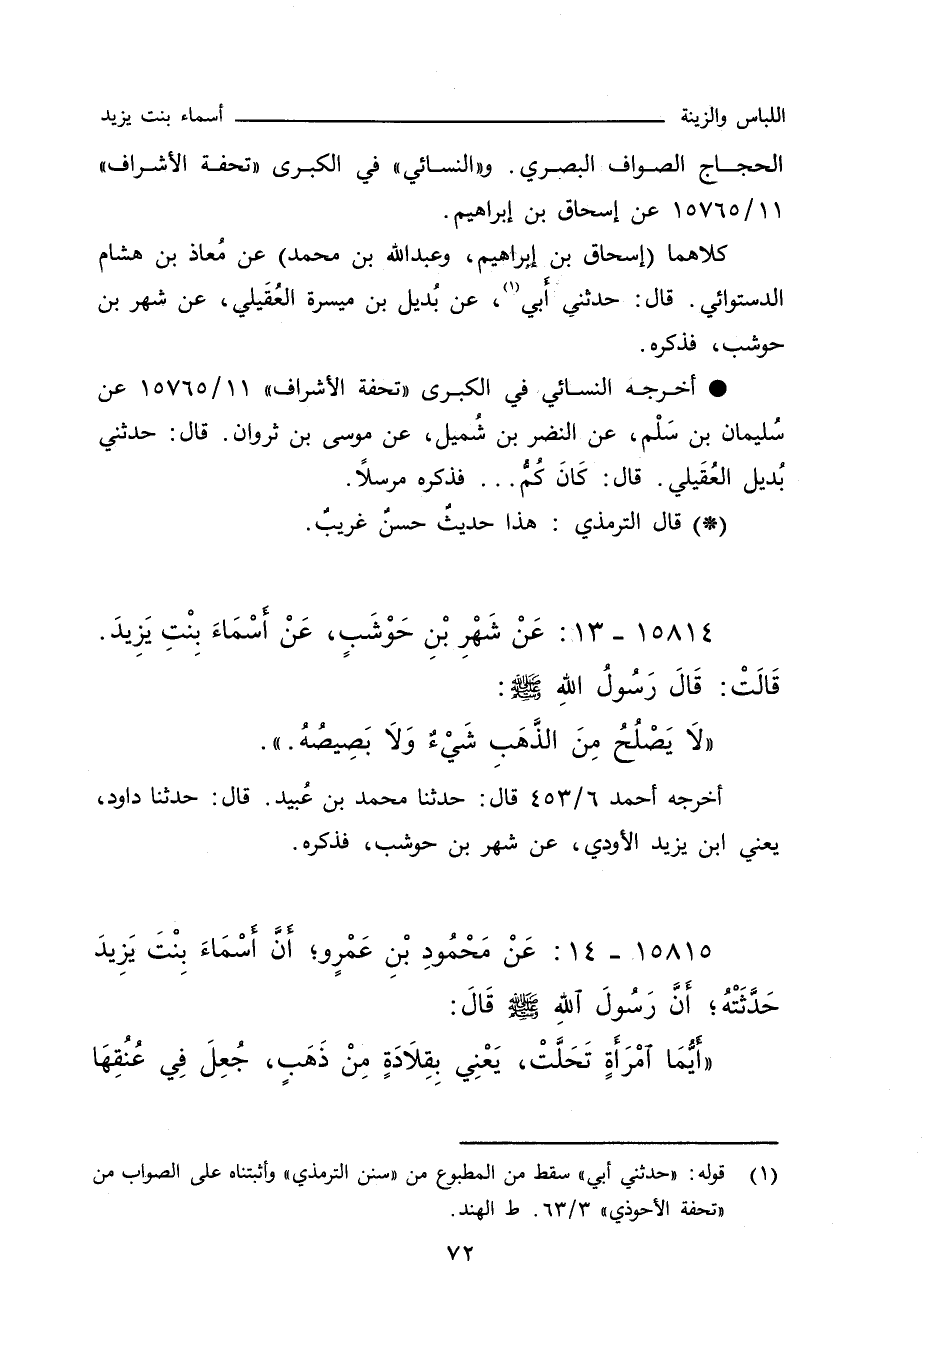 اللباس والزينة ــــــــــــــــ أسماء بنت يزيد
الحجـاج الصـواف البصـري. و«النسـائي» في الكبرى «تحفـة الأشراف»
١٥٧٦٥/١١ عن إسحاق بن إبراهيم.
كلاهما (إسحاق بن إبراهيم، وعبدالله بن محمد) عن مُعاذ بن هشام
الدستوائي. قال: حدثني أَبي(١)، عن بُديل بن ميسرة العُقَيلي، عن شهر بن
حوشب، فذكره.
● أخـرجـه النسـائي في الكبرى «تحفة الأشراف» ١٥٧٦٥/١١ عن
سُليمان بن سَلْم، عن النضر بن شُميل، عن موسى بن ثروان. قال: حدثني
بُديل العُقَيلي. قال: كَانَ كُمُّ... فذكره مرسلًا.
(*) قال الترمذي : هذا حديثٌ حسنٌ غريبٌ.
١٥٨١٤ ـ ١٣: عَنْ شَهْرِ بْنِ حَوْشَبٍ، عَنْ أَسْمَاءَ بِنْتِ يَزِيدَ.
قَالَتْ: قَالَ رَسُولُ اللهِ ﷺ:
«لَا يَصْلُحُ مِنَ الذَّهَبِ شَيْءٌ وَلَا بَصِيصُهُ.».
أخرجه أحمد ٤٥٣/٦ قال: حدثنا محمد بن عُبيد. قال: حدثنا داود،
يعني ابن يزيد الأودي، عن شهر بن حوشب، فذكره.
١٥٨١٥ ـ ١٤: عَنْ مَحْمُودِ بْنِ عَمْرٍو؛ أَنَّ أَسْمَاءَ بِنْتَ يَزِيدَ
حَدَّثَتْهُ؛ أَنَّ رَسُولَ ٱللهِ ﷺ قَالَ:
«أَيُّمَا ٱمْرَأَةٍ تَحَلَّتْ، يَعْنِي بِقِلَادَةٍ مِنْ ذَهَبٍ، جُعِلَ فِي عُنُقِهَا
(١) قوله: «حدثني أبي» سقط من المطبوع من «سنن الترمذي» وأثبتناه على الصواب من
«تحفة الأحوذي» ٦٣/٣. ط الهند.
٧٢